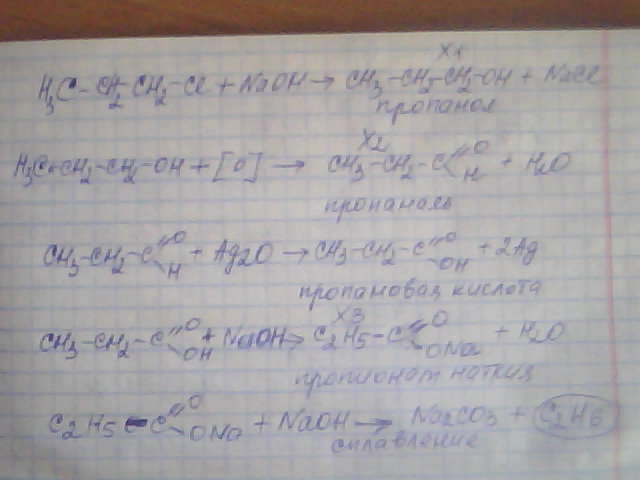 X1
H3C-CH2-CH2-Cl + NaOH → CH3-CH2-CH2-OH + NaCl
пропанол
X2
H3C-CH2-CH2-OH + [O] → CH3-CH2-C=O H + H2O
пропаналь
CH3-CH2-C=O H + Ag2O → CH3-CH2-C=O OH + 2Ag
пропановая кислота
X3
CH3-CH2-C=O OH + NaOH → C2H5-C=O ONa + H2O
пропионат натрия
C2H5-C=O ONa + NaOH → Na2CO3 + C2H6
сплавление